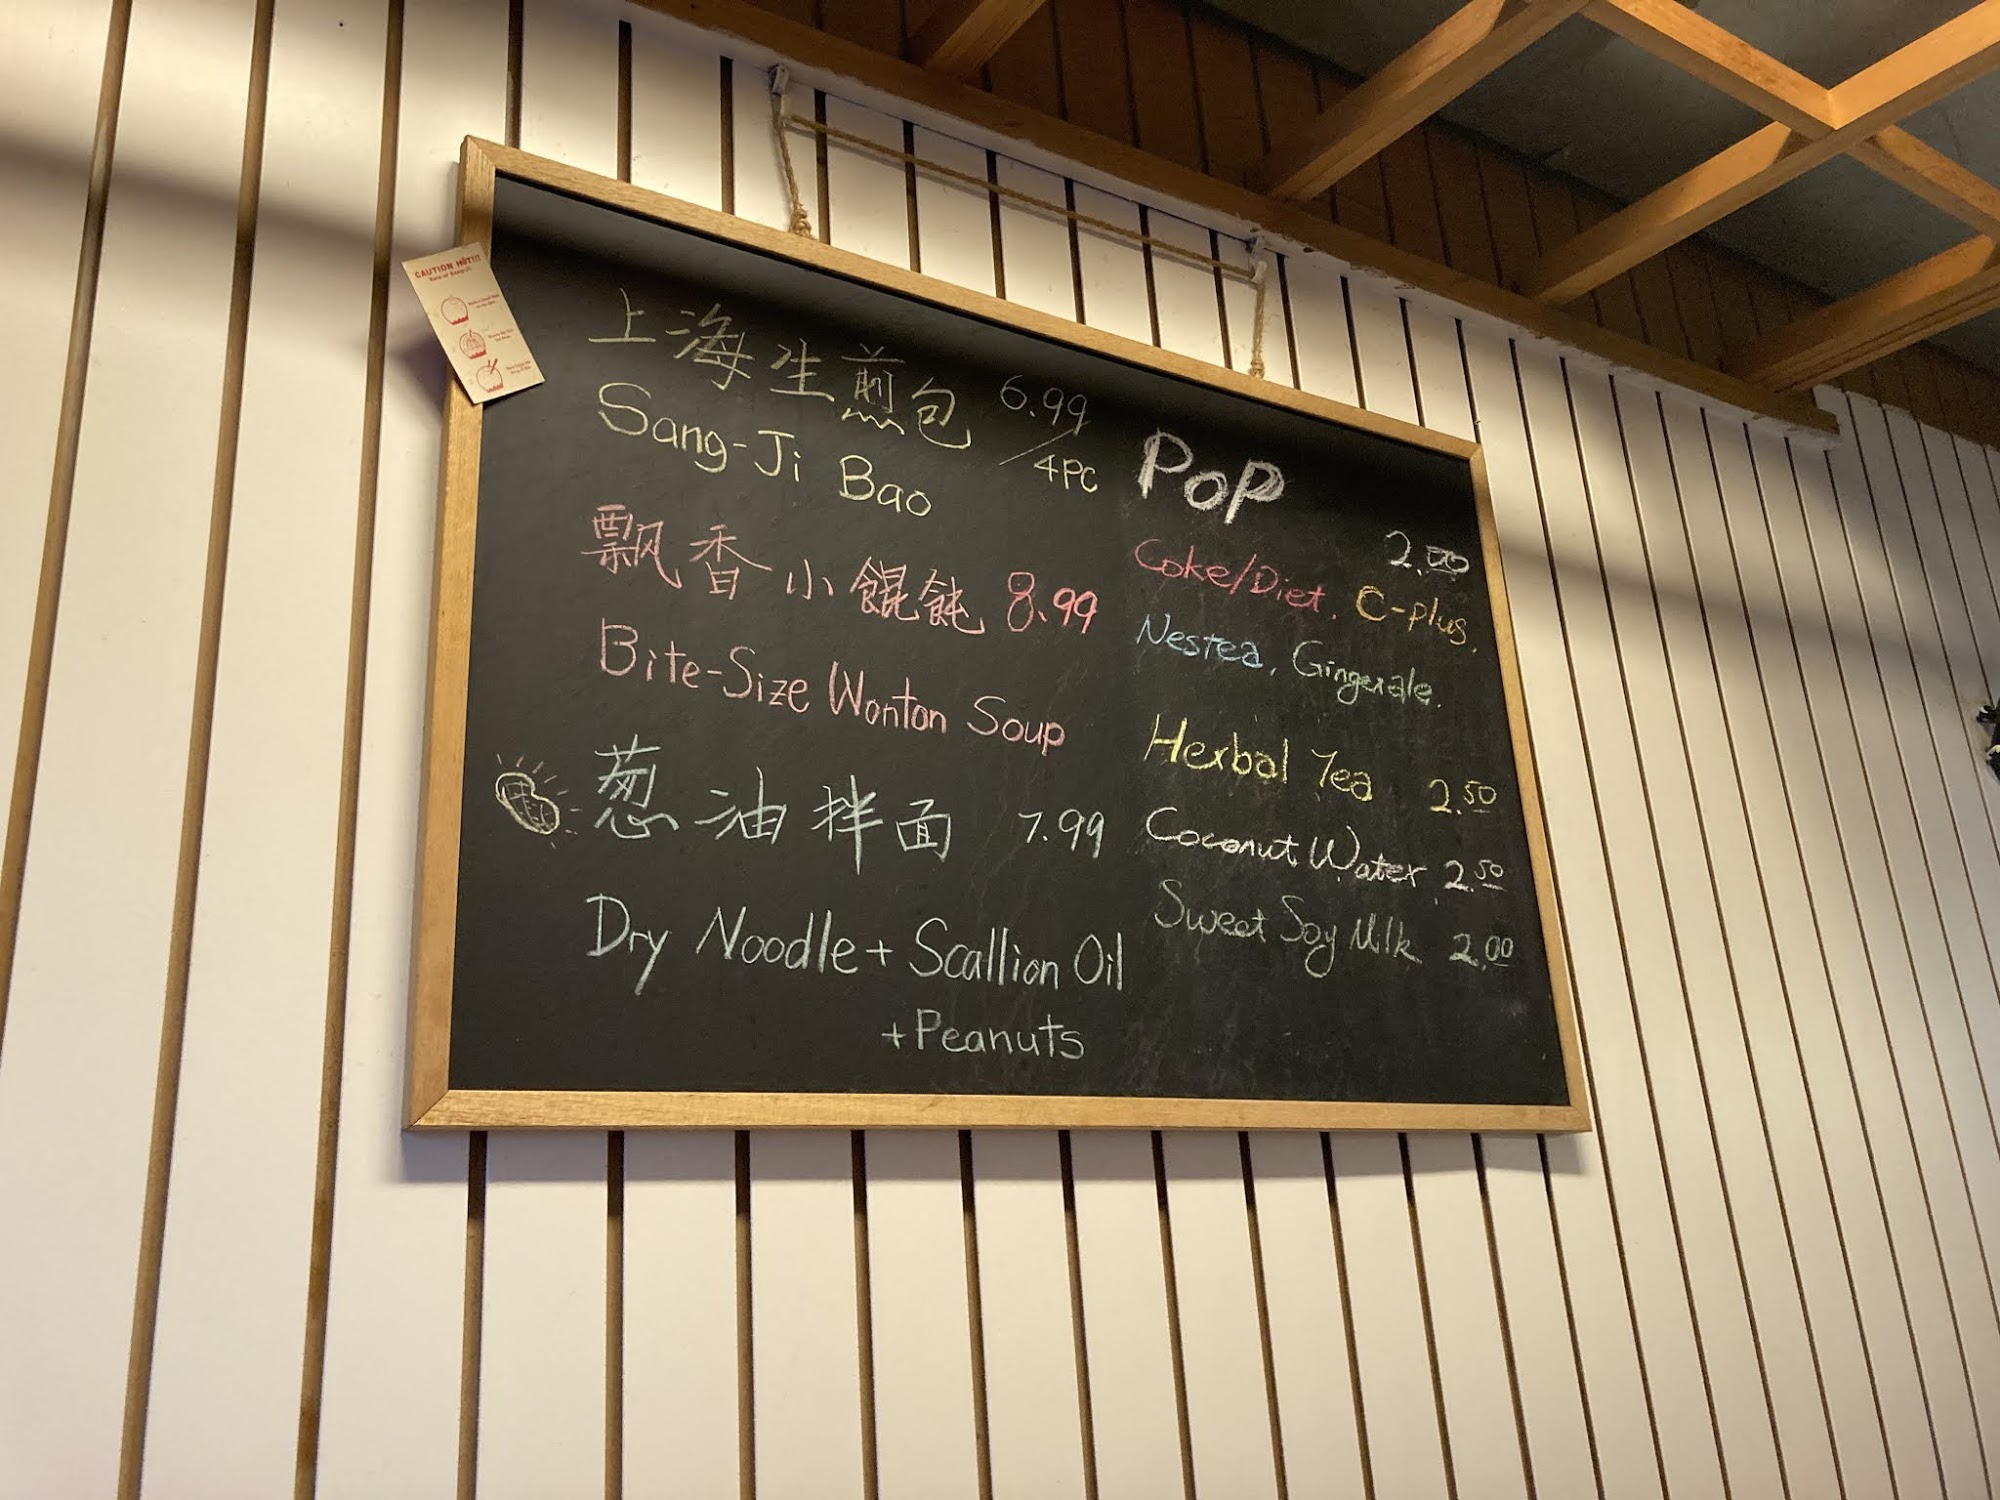 CAUTION HOT!!!
上海生煎包 6.99/4PC
Sang-Ji Bao
飘香小餛飩 8.99
Bite-Size Wonton Soup
葱油拌面 7.99
Dry Noodle + Scallion Oil
+Peanuts
PoP
2.00
Coke/Diet, C-plus,
Nestea, Gingerale.
Herbal Tea 2.50
Coconut Water 2.50
Sweet Soy Milk 2.00